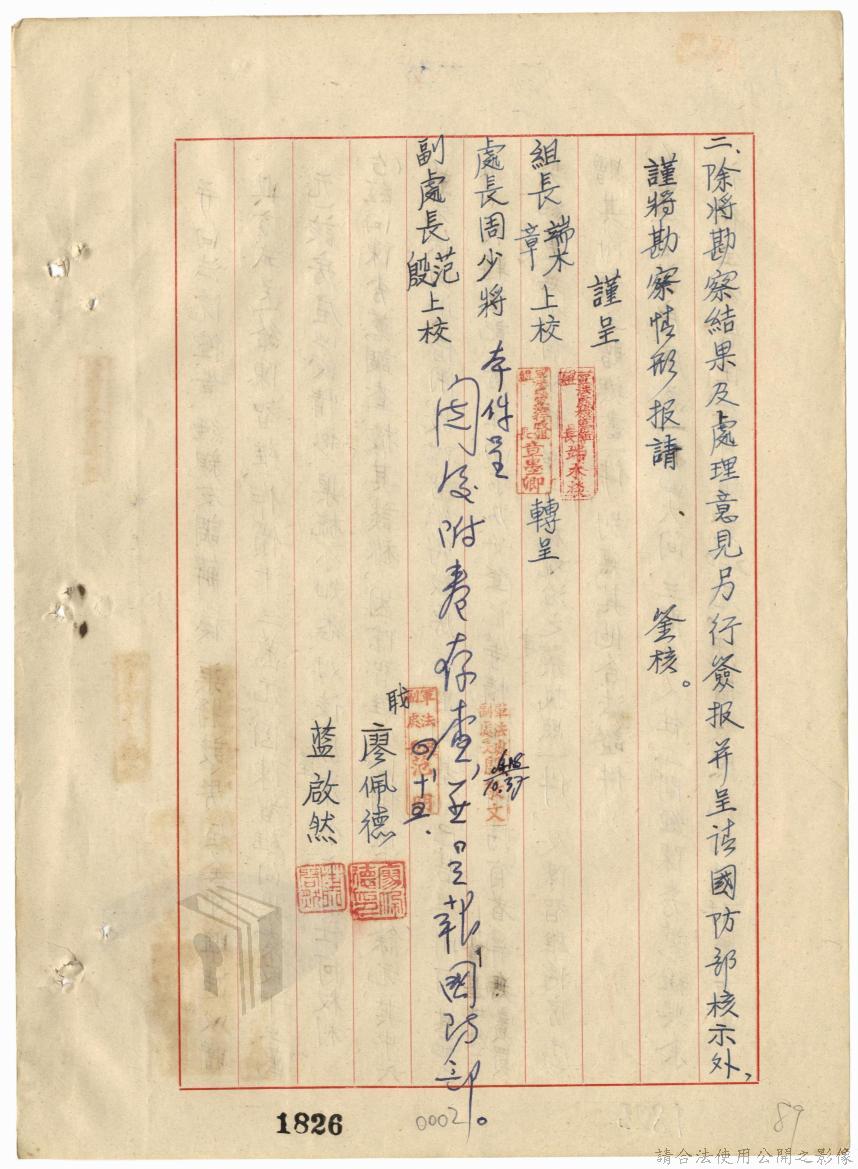 二、除將勘察結果及處理意見另行簽報并呈請國防部核示外，
謹將勘察情形报請　鉴核。
謹呈
組長端木上校
章
處長周少將
轉呈
副處長范上校
殷
本件呈
閱後附卷存查，不另呈報國防部。
四、十五、
職
廖佩德
藍啟然
組長端木
組長章墨卿
軍法
副處
1826
0002
89
請合法使用公開之影像